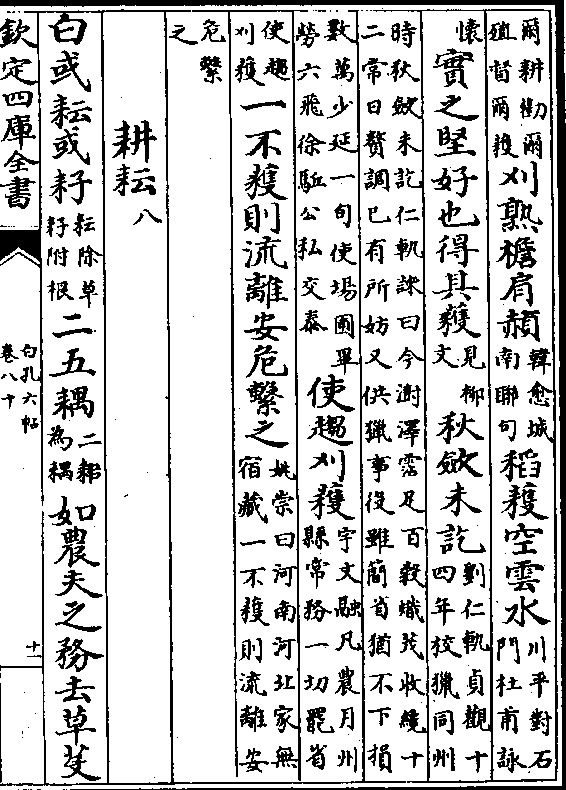 爾耕勸爾殖督爾穫刈熟檐肩赬韓愈城南聯句稻穫空雲水川平對石門杜甫詠
懷實之堅好也得其穫見柳文秋斂未訖劉仁軌貞觀十四年校獵同州
時秋斂未訖仁軌諫曰今澍澤霑足百穀熾茂收纔十二常日贅調已有所妨又供獵事役雖簡省猶不下損
數萬少延一旬使場圃畢勞六飛徐驅公私交泰使趨刈穫宇文融凡農月州縣常務一切罷省
使趨刈穫一不穫則流離安危繫之姚崇曰河南河北家無宿藏一不穫則流離安
危繫之
耕耘八
白或耘或耔耘除草耔附根二五耦二耜為耦如農夫之務去草芟
欽定四庫全書
白孔六帖
卷八十
十一